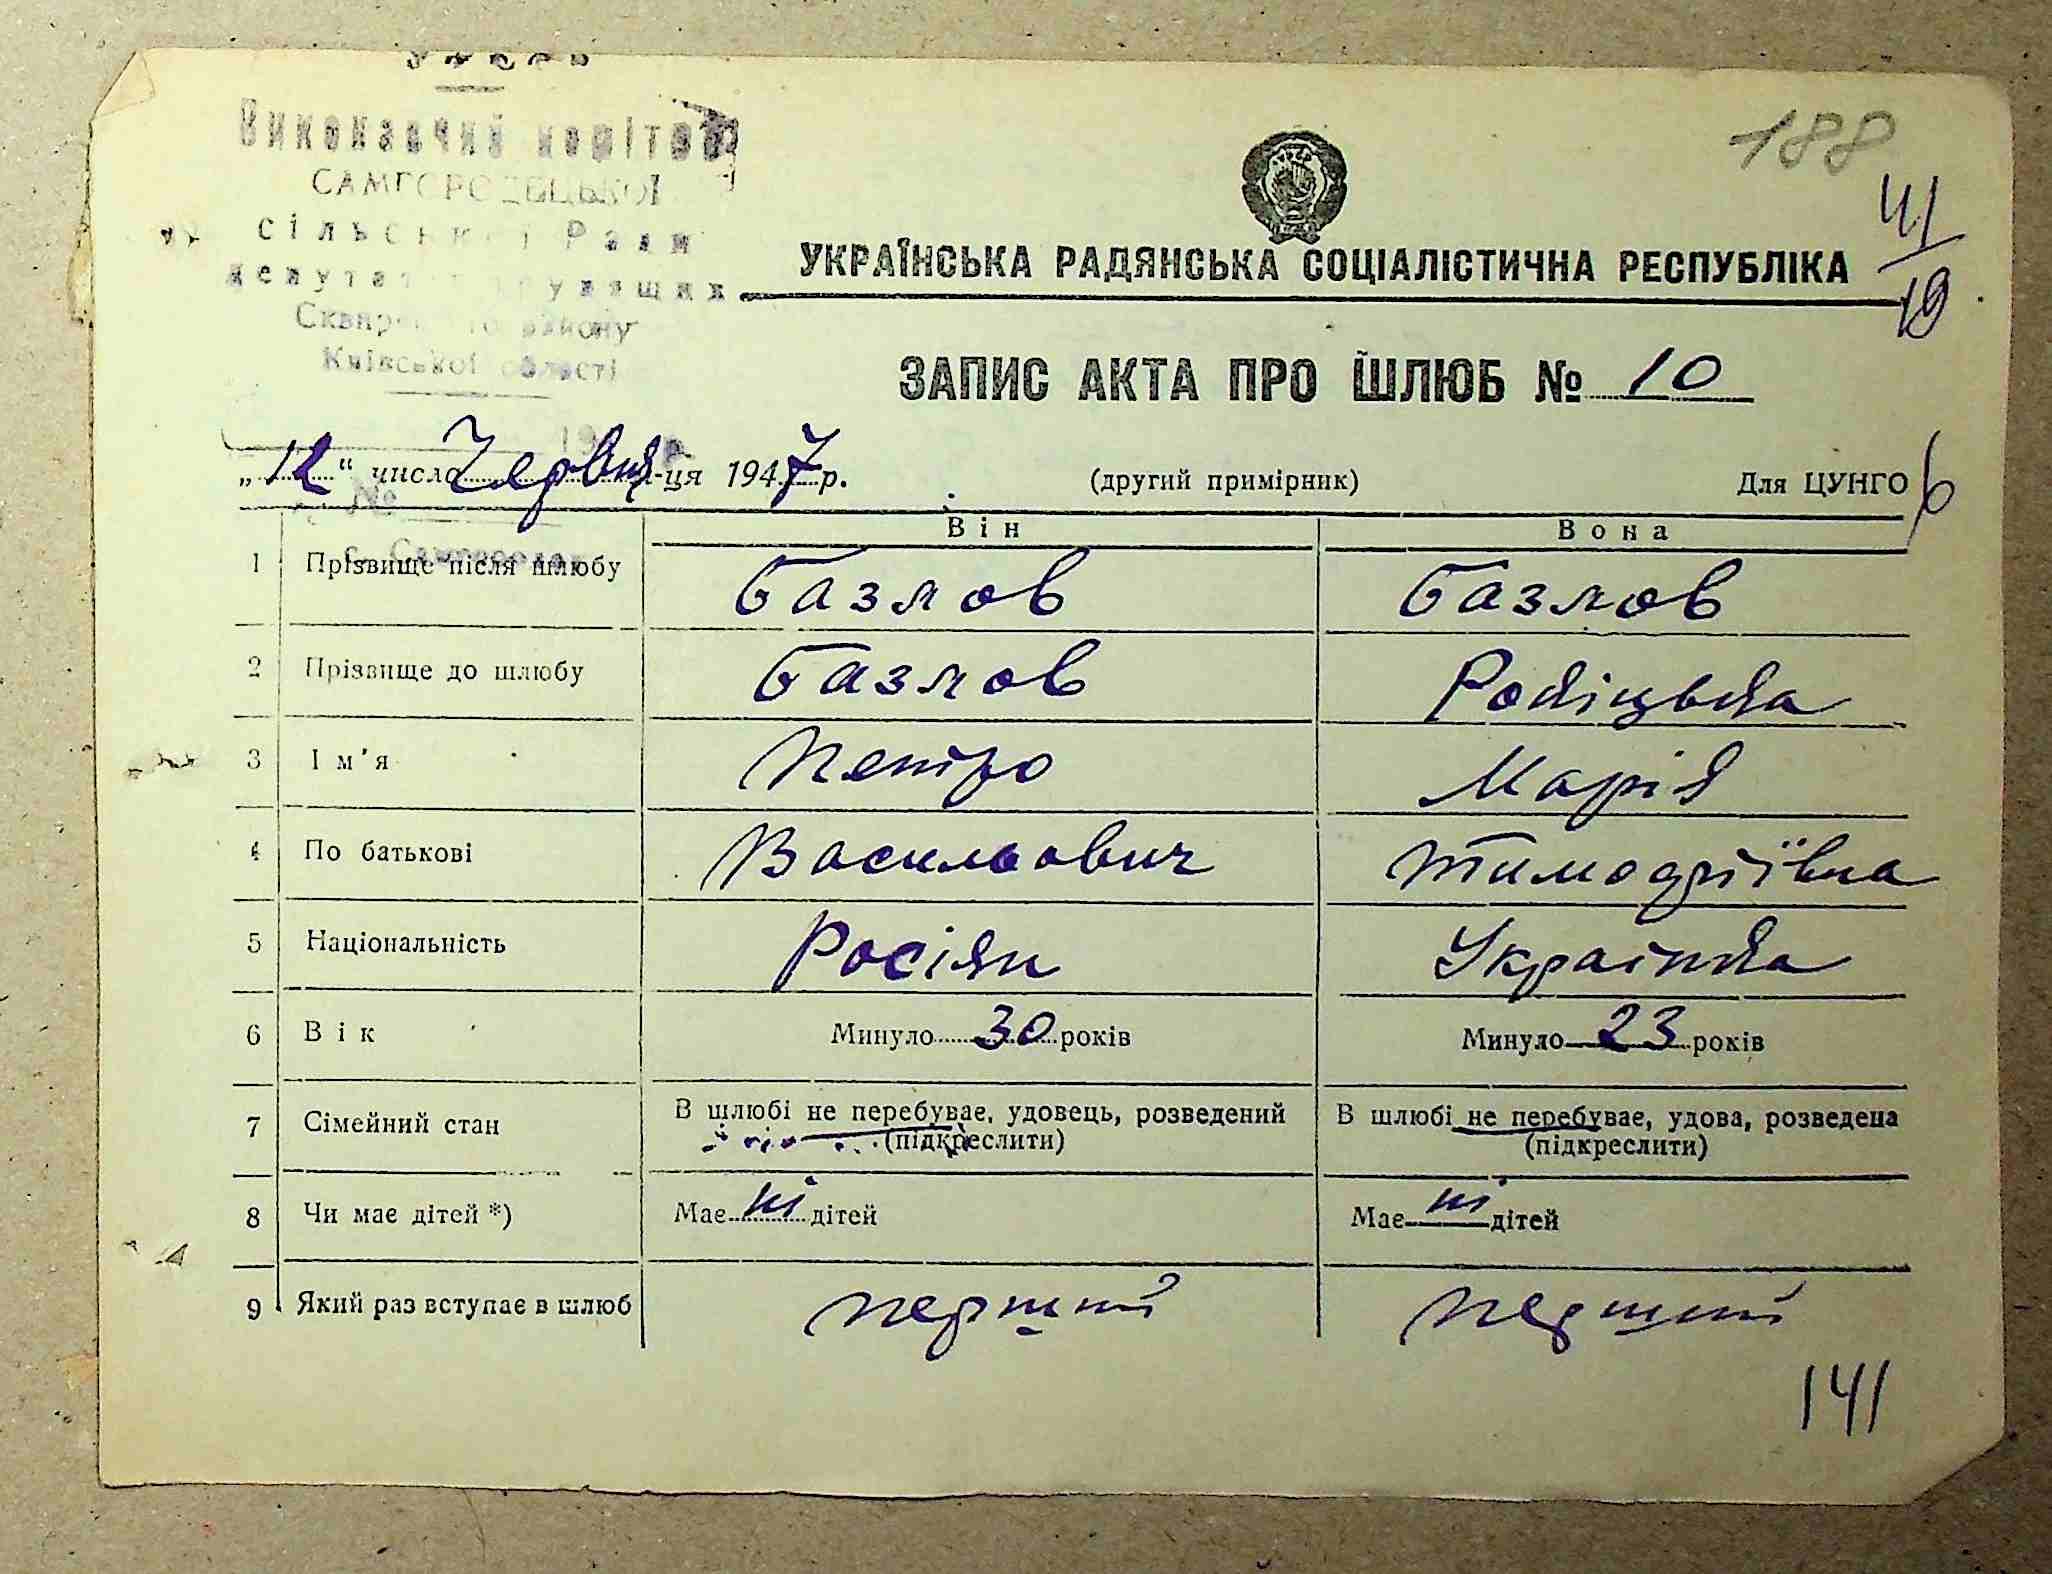 У Р С Р
Виконавчий комітет
САМГОРОДЕЦЬКОЇ
сільської Ради
депутатів трудящих
Сквирського району
Київської області
188
41/19
УКРАЇНСЬКА РАДЯНСЬКА СОЦІАЛІСТИЧНА РЕСПУБЛІКА
ЗАПИС АКТА ПРО ШЛЮБ № 10
„12“ числа Червня м-ця 1947 р. (другий примірник) Для ЦУНГО 6
№
Він Вона
1 Прізвище після шлюбу Базлов Базлов
2 Прізвище до шлюбу Базлов
3 Ім'я Петро Марія
4 По батькові Васильович Тимофіївна
5 Національність Росіян Українка
6 Вік Минуло 30 років Минуло 23 років
7 Сімейний стан В шлюбі не перебуває, удовець, розведений В шлюбі не перебуває, удова, розведена
(підкреслити) (підкреслити)
8 Чи має дітей *) Має ні дітей Має ні дітей
9 Який раз вступає в шлюб перший перший
141